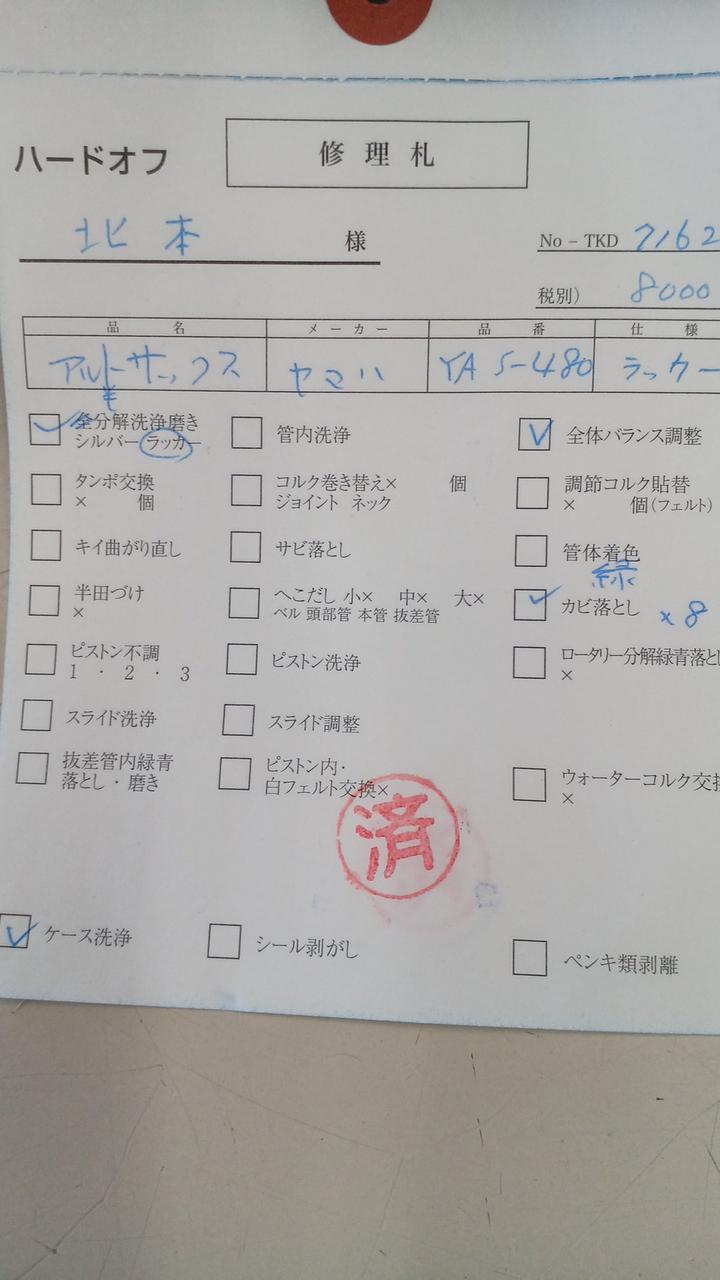 ハードオフ
修理札
北本 様
No－TKD 7162
税別） 8000
品名 メーカー 品番 仕様
アルトサックス ヤマハ YAS-480 ラッカー
全分解洗浄磨き
シルバー ラッカー
管内洗浄
全体バランス調整
タンポ交換
× 個
コルク巻き替え× 個
ジョイント ネック
調節コルク貼替
× 個（フェルト）
キイ曲がり直し
サビ落とし
管体着色
半田づけ
×
へこだし 小× 中× 大×
ベル 頭部管 本管 抜差管
緑
カビ落とし ×8
ピストン不調
1 ・ 2 ・ 3
ピストン洗浄
ロータリー分解緑青落とし
×
スライド洗浄
スライド調整
抜差管内緑青
落とし・磨き
ピストン内・
白フェルト交換×
ウォーターコルク交換
×
済
ケース洗浄
シール剥がし
ペンキ類剥離